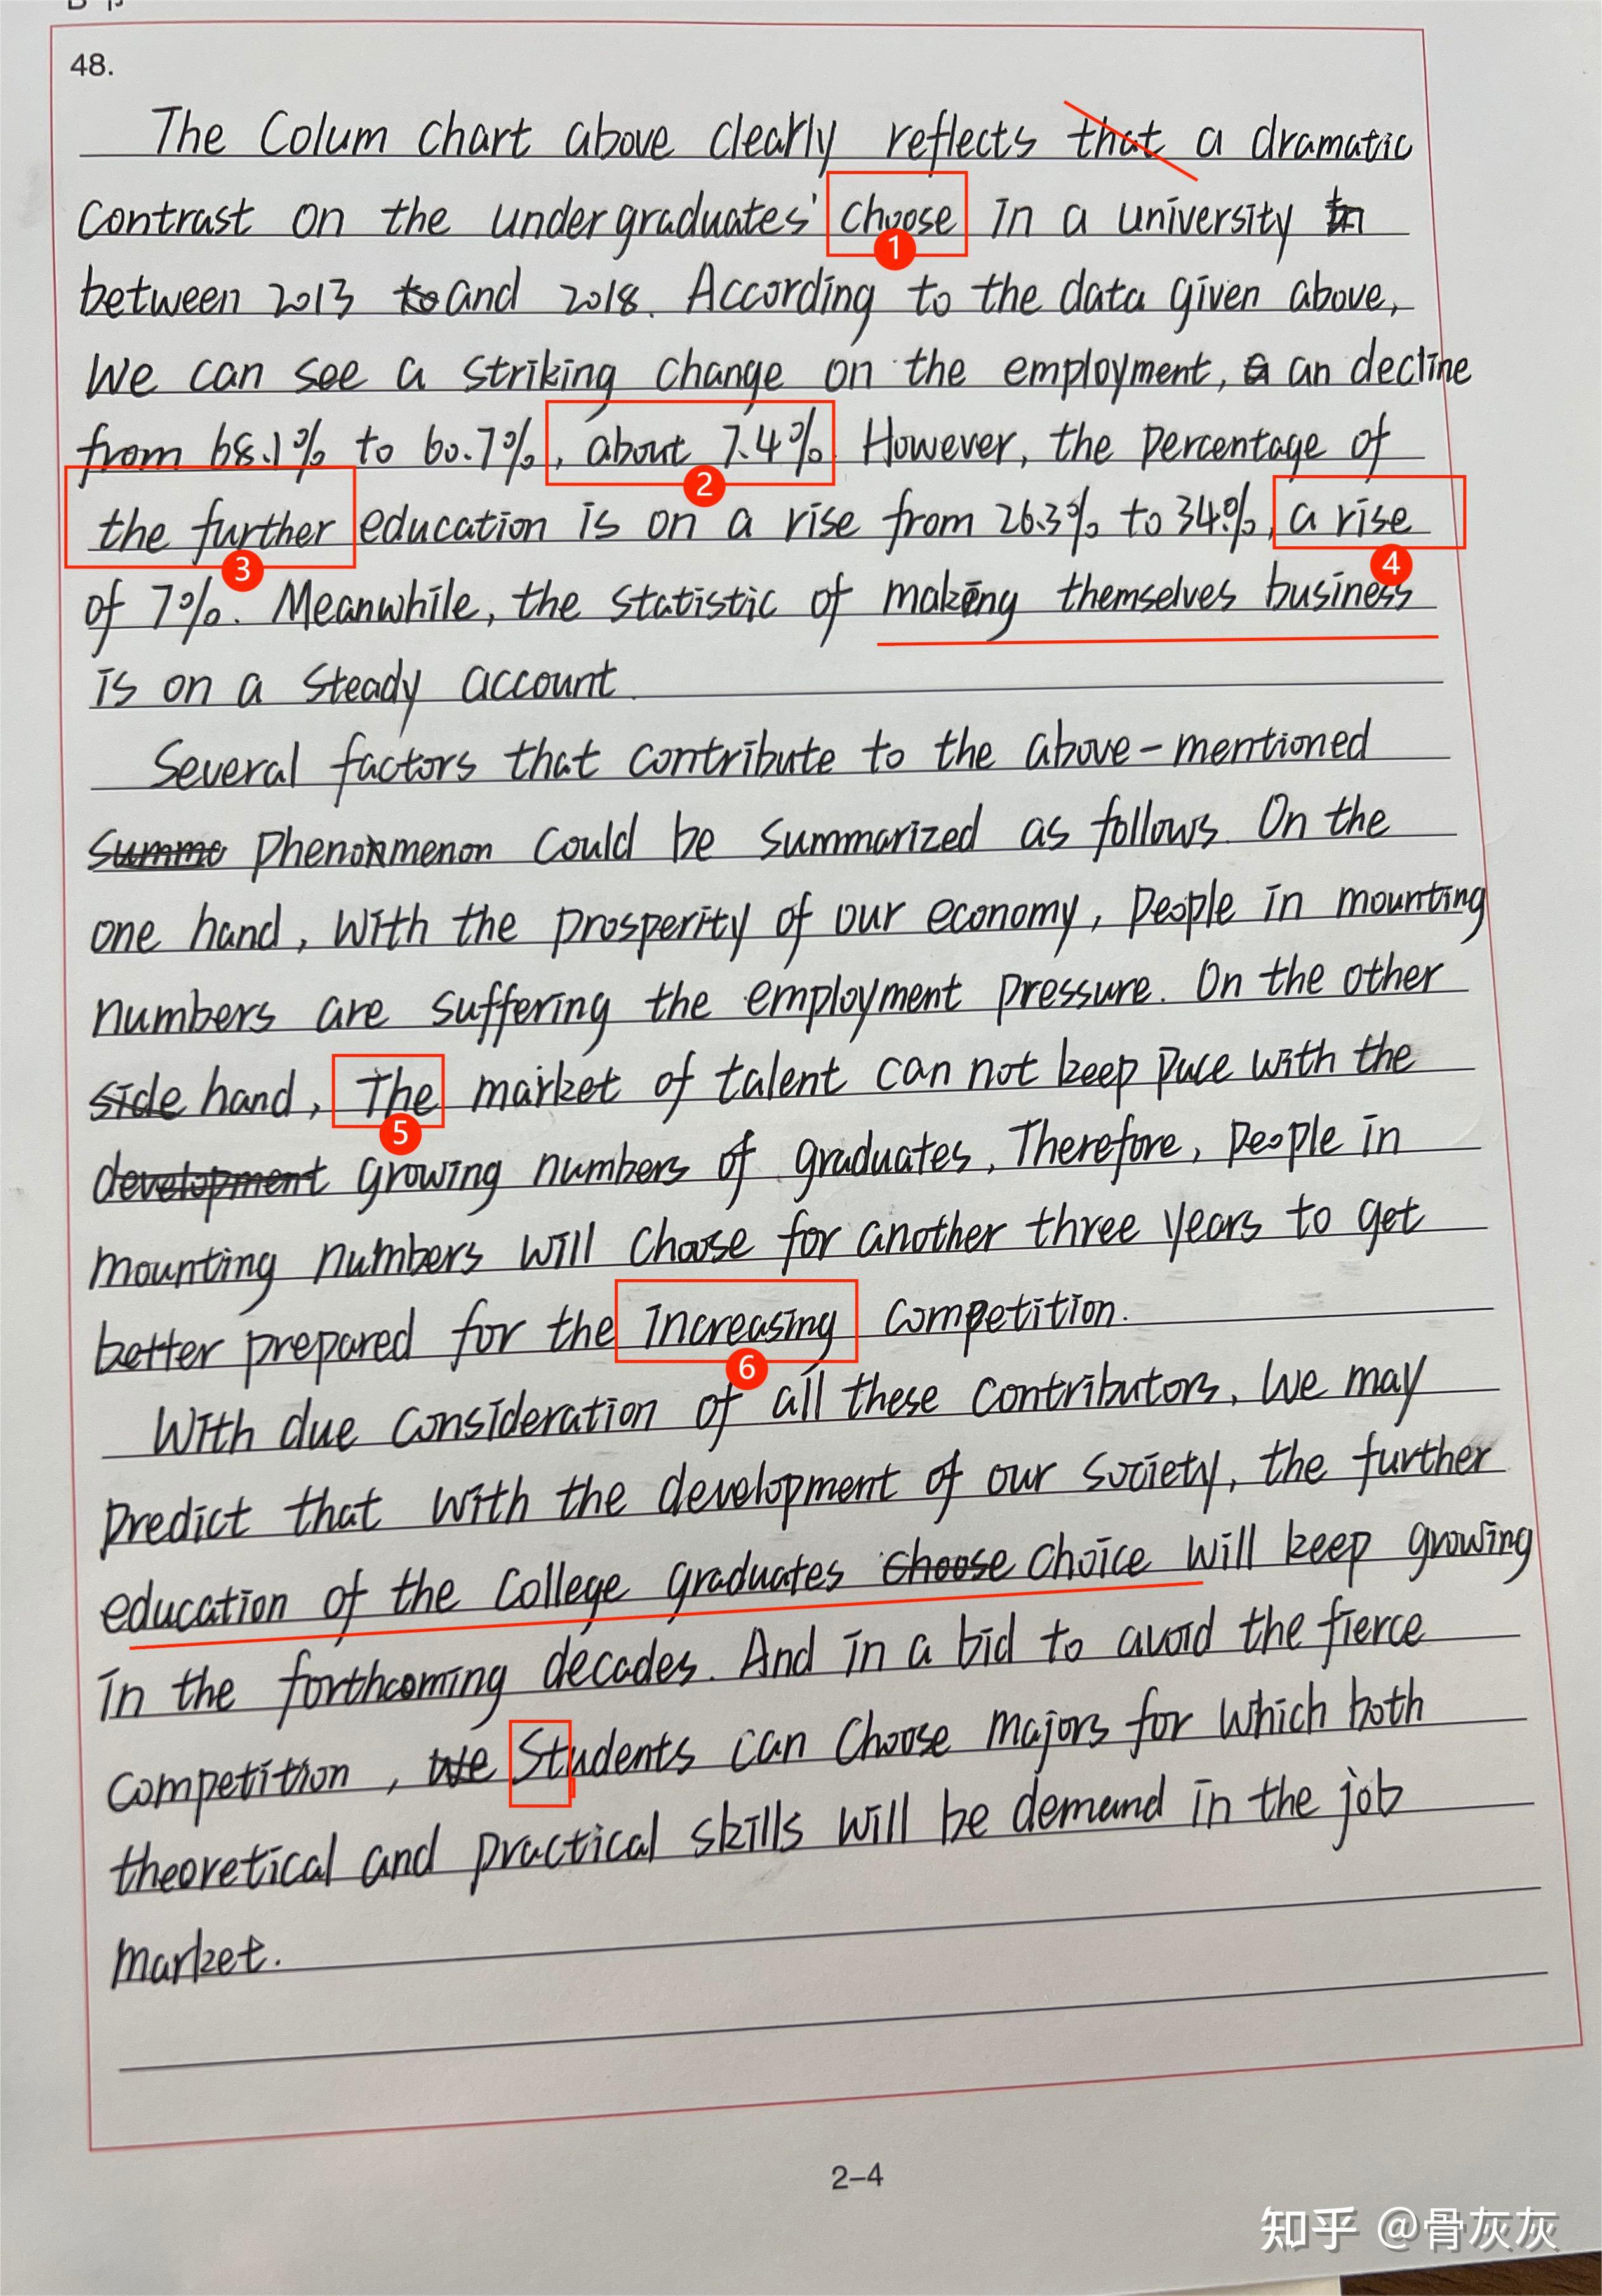 48.
The Colum chart above clearly reflects that a dramatic
contrast on the undergraduates' choose in a university in
1
between 2013 to and 2018. According to the data given above,
We can see a striking change on the employment, a an decline
from 68.1% to 60.7%, about 7.4%. However, the percentage of
2
the further education is on a rise from 26.3% to 34%, a rise
3
4
of 7%. Meanwhile, the statistic of making themselves business
is on a steady account.
Several factors that contribute to the above-mentioned
summe phenonmenon could be summarized as follows. On the
one hand, with the prosperity of our economy, people in mounting
numbers are suffering the employment pressure. On the other
side hand, The market of talent can not keep pace with the
5
development growing numbers of graduates, Therefore, people in
mounting numbers will choose for another three years to get
better prepared for the increasing competition.
6
With due consideration of all these contributors, we may
predict that with the development of our society, the further
education of the college graduates choose choice will keep growing
in the forthcoming decades. And in a bid to avoid the fierce
competition, we Students can choose majors for which both
theoretical and practical skills will be demand in the job
market.
2-4
知乎 @骨灰灰